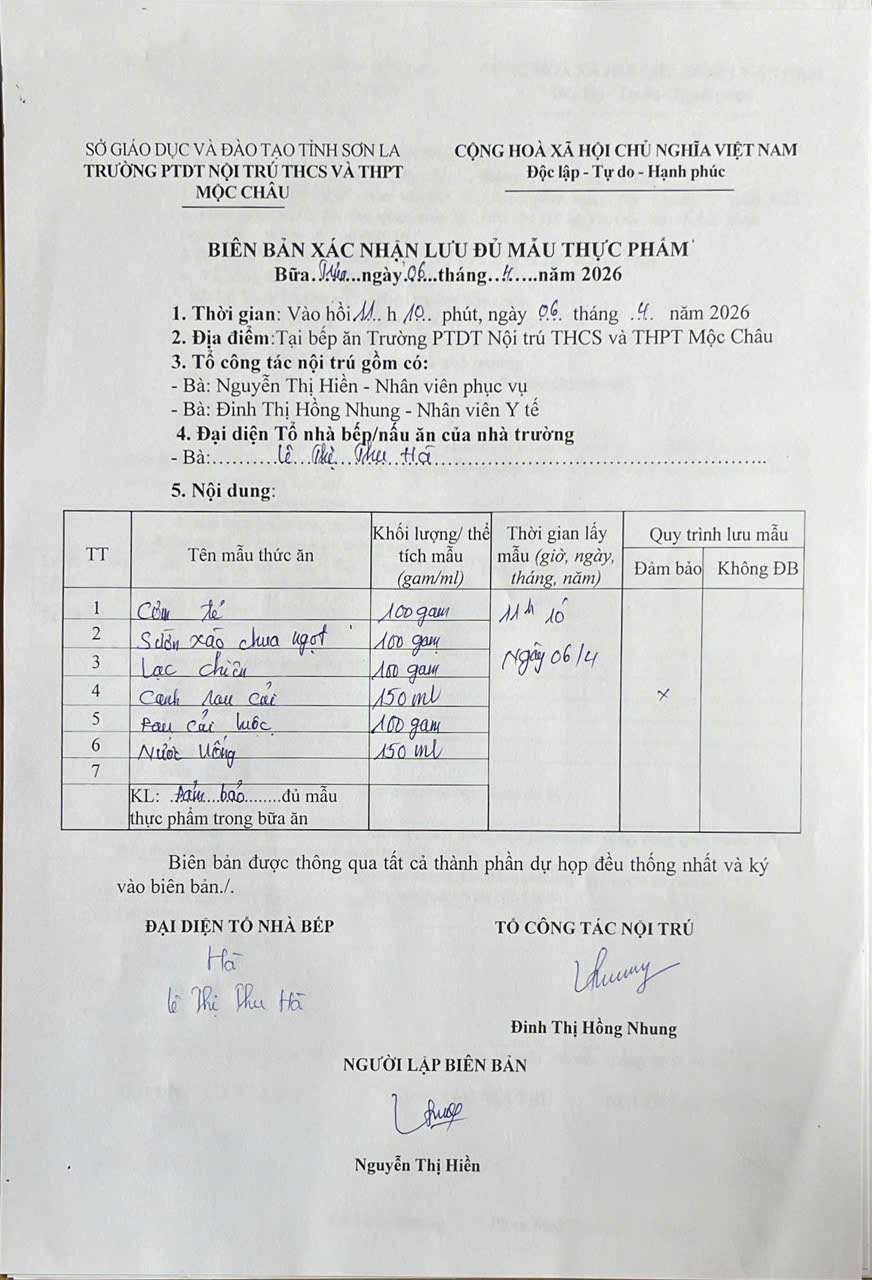 SỞ GIÁO DỤC VÀ ĐÀO TẠO TỈNH SƠN LA
TRƯỜNG PTDT NỘI TRÚ THCS VÀ THPT
MỘC CHÂU
CỘNG HOÀ XÃ HỘI CHỦ NGHĨA VIỆT NAM
Độc lập - Tự do - Hạnh phúc
BIÊN BẢN XÁC NHẬN LƯU ĐỦ MẪU THỰC PHẨM
Bữa Trưa ngày 06 tháng 4 năm 2026
1. Thời gian: Vào hồi 11 h 10 phút, ngày 06 tháng 4 năm 2026
2. Địa điểm:Tại bếp ăn Trường PTDT Nội trú THCS và THPT Mộc Châu
3. Tổ công tác nội trú gồm có:
- Bà: Nguyễn Thị Hiền - Nhân viên phục vụ
- Bà: Đinh Thị Hồng Nhung - Nhân viên Y tế
4. Đại diện Tổ nhà bếp/nấu ăn của nhà trường
- Bà: Lê Thị Thu Hà
5. Nội dung:
TT Tên mẫu thức ăn Khối lượng/ thể tích mẫu (gam/ml) Thời gian lấy mẫu (giờ, ngày, tháng, năm) Quy trình lưu mẫu
Đảm bảo Không ĐB
1 Cơm tẻ 100 gam 11h 10
2 Sườn xào chua ngọt 100 gam
3 Lạc chiên 100 gam Ngày 06/4
4 Canh rau cải 150 ml x
5 Rau cải luộc 100 gam
6 Nước uống 150 ml
7
KL: Đảm bảo đủ mẫu
thực phẩm trong bữa ăn
Biên bản được thông qua tất cả thành phần dự họp đều thống nhất và ký
vào biên bản./.
ĐẠI DIỆN TỔ NHÀ BẾP
Hà
Lê Thị Thu Hà
TỔ CÔNG TÁC NỘI TRÚ
Nhung
Đinh Thị Hồng Nhung
NGƯỜI LẬP BIÊN BẢN
Nguyễn Thị Hiền